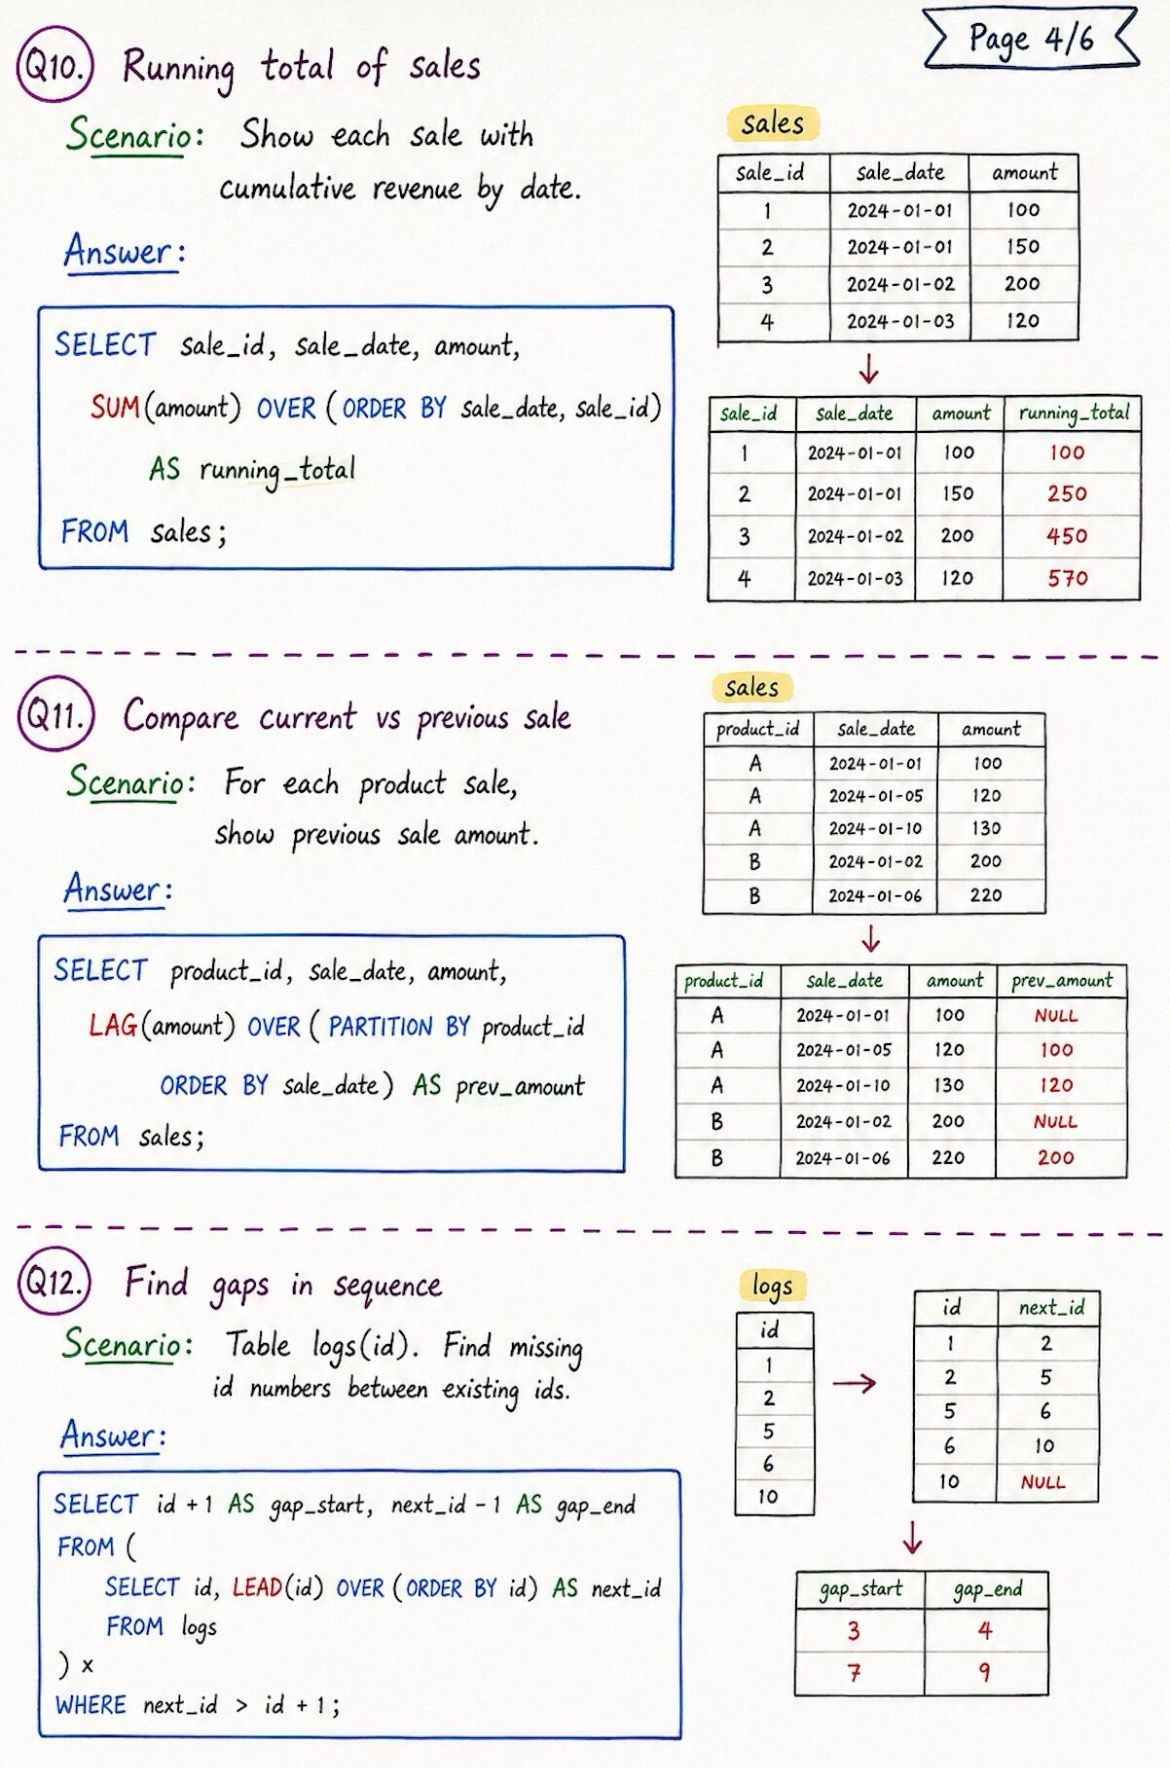 Page 4/6
Q10. Running total of sales
Scenario: Show each sale with
cumulative revenue by date.
Answer:
SELECT sale_id, sale_date, amount,
SUM(amount) OVER (ORDER BY sale_date, sale_id)
AS running_total
FROM sales;
sales
sale_id sale_date amount
1 2024-01-01 100
2 2024-01-01 150
3 2024-01-02 200
4 2024-01-03 120
sale_id sale_date amount running_total
1 2024-01-01 100 100
2 2024-01-01 150 250
3 2024-01-02 200 450
4 2024-01-03 120 570
Q11. Compare current vs previous sale
Scenario: For each product sale,
show previous sale amount.
Answer:
SELECT product_id, sale_date, amount,
LAG(amount) OVER (PARTITION BY product_id
ORDER BY sale_date) AS prev_amount
FROM sales;
sales
product_id sale_date amount
A 2024-01-01 100
A 2024-01-05 120
A 2024-01-10 130
B 2024-01-02 200
B 2024-01-06 220
product_id sale_date amount prev_amount
A 2024-01-01 100 NULL
A 2024-01-05 120 100
A 2024-01-10 130 120
B 2024-01-02 200 NULL
B 2024-01-06 220 200
Q12. Find gaps in sequence
Scenario: Table logs(id). Find missing
id numbers between existing ids.
Answer:
SELECT id + 1 AS gap_start, next_id - 1 AS gap_end
FROM (
SELECT id, LEAD(id) OVER (ORDER BY id) AS next_id
FROM logs
) x
WHERE next_id > id + 1;
logs
id
1
2
5
6
10
id next_id
1 2
2 5
5 6
6 10
10 NULL
gap_start gap_end
3 4
7 9